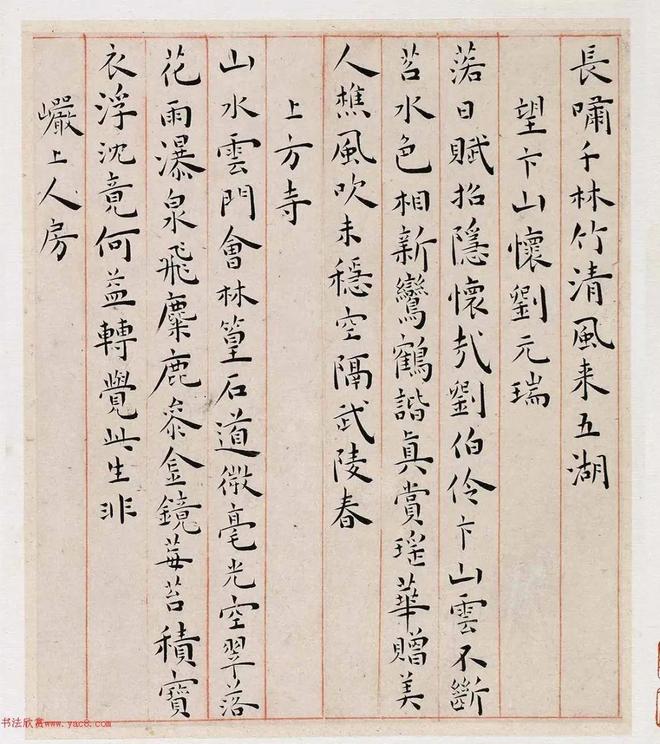 長嘯千林竹清風来五湖
望卞山懷劉元瑞
落日賦招隱懷哉劉伯伶卞山雲不斷
苕水色相新鸞鶴諧真賞瑤華贈美
人樵風吹未穩空隔武陵春
上方寺
山水雲門會林篁石道微毫光空翠落
花雨瀑泉飛麋鹿參金鏡莓苔積寶
衣浮沈竟何益轉覺此生非
巖上人房
书法欣赏www.yac8.com